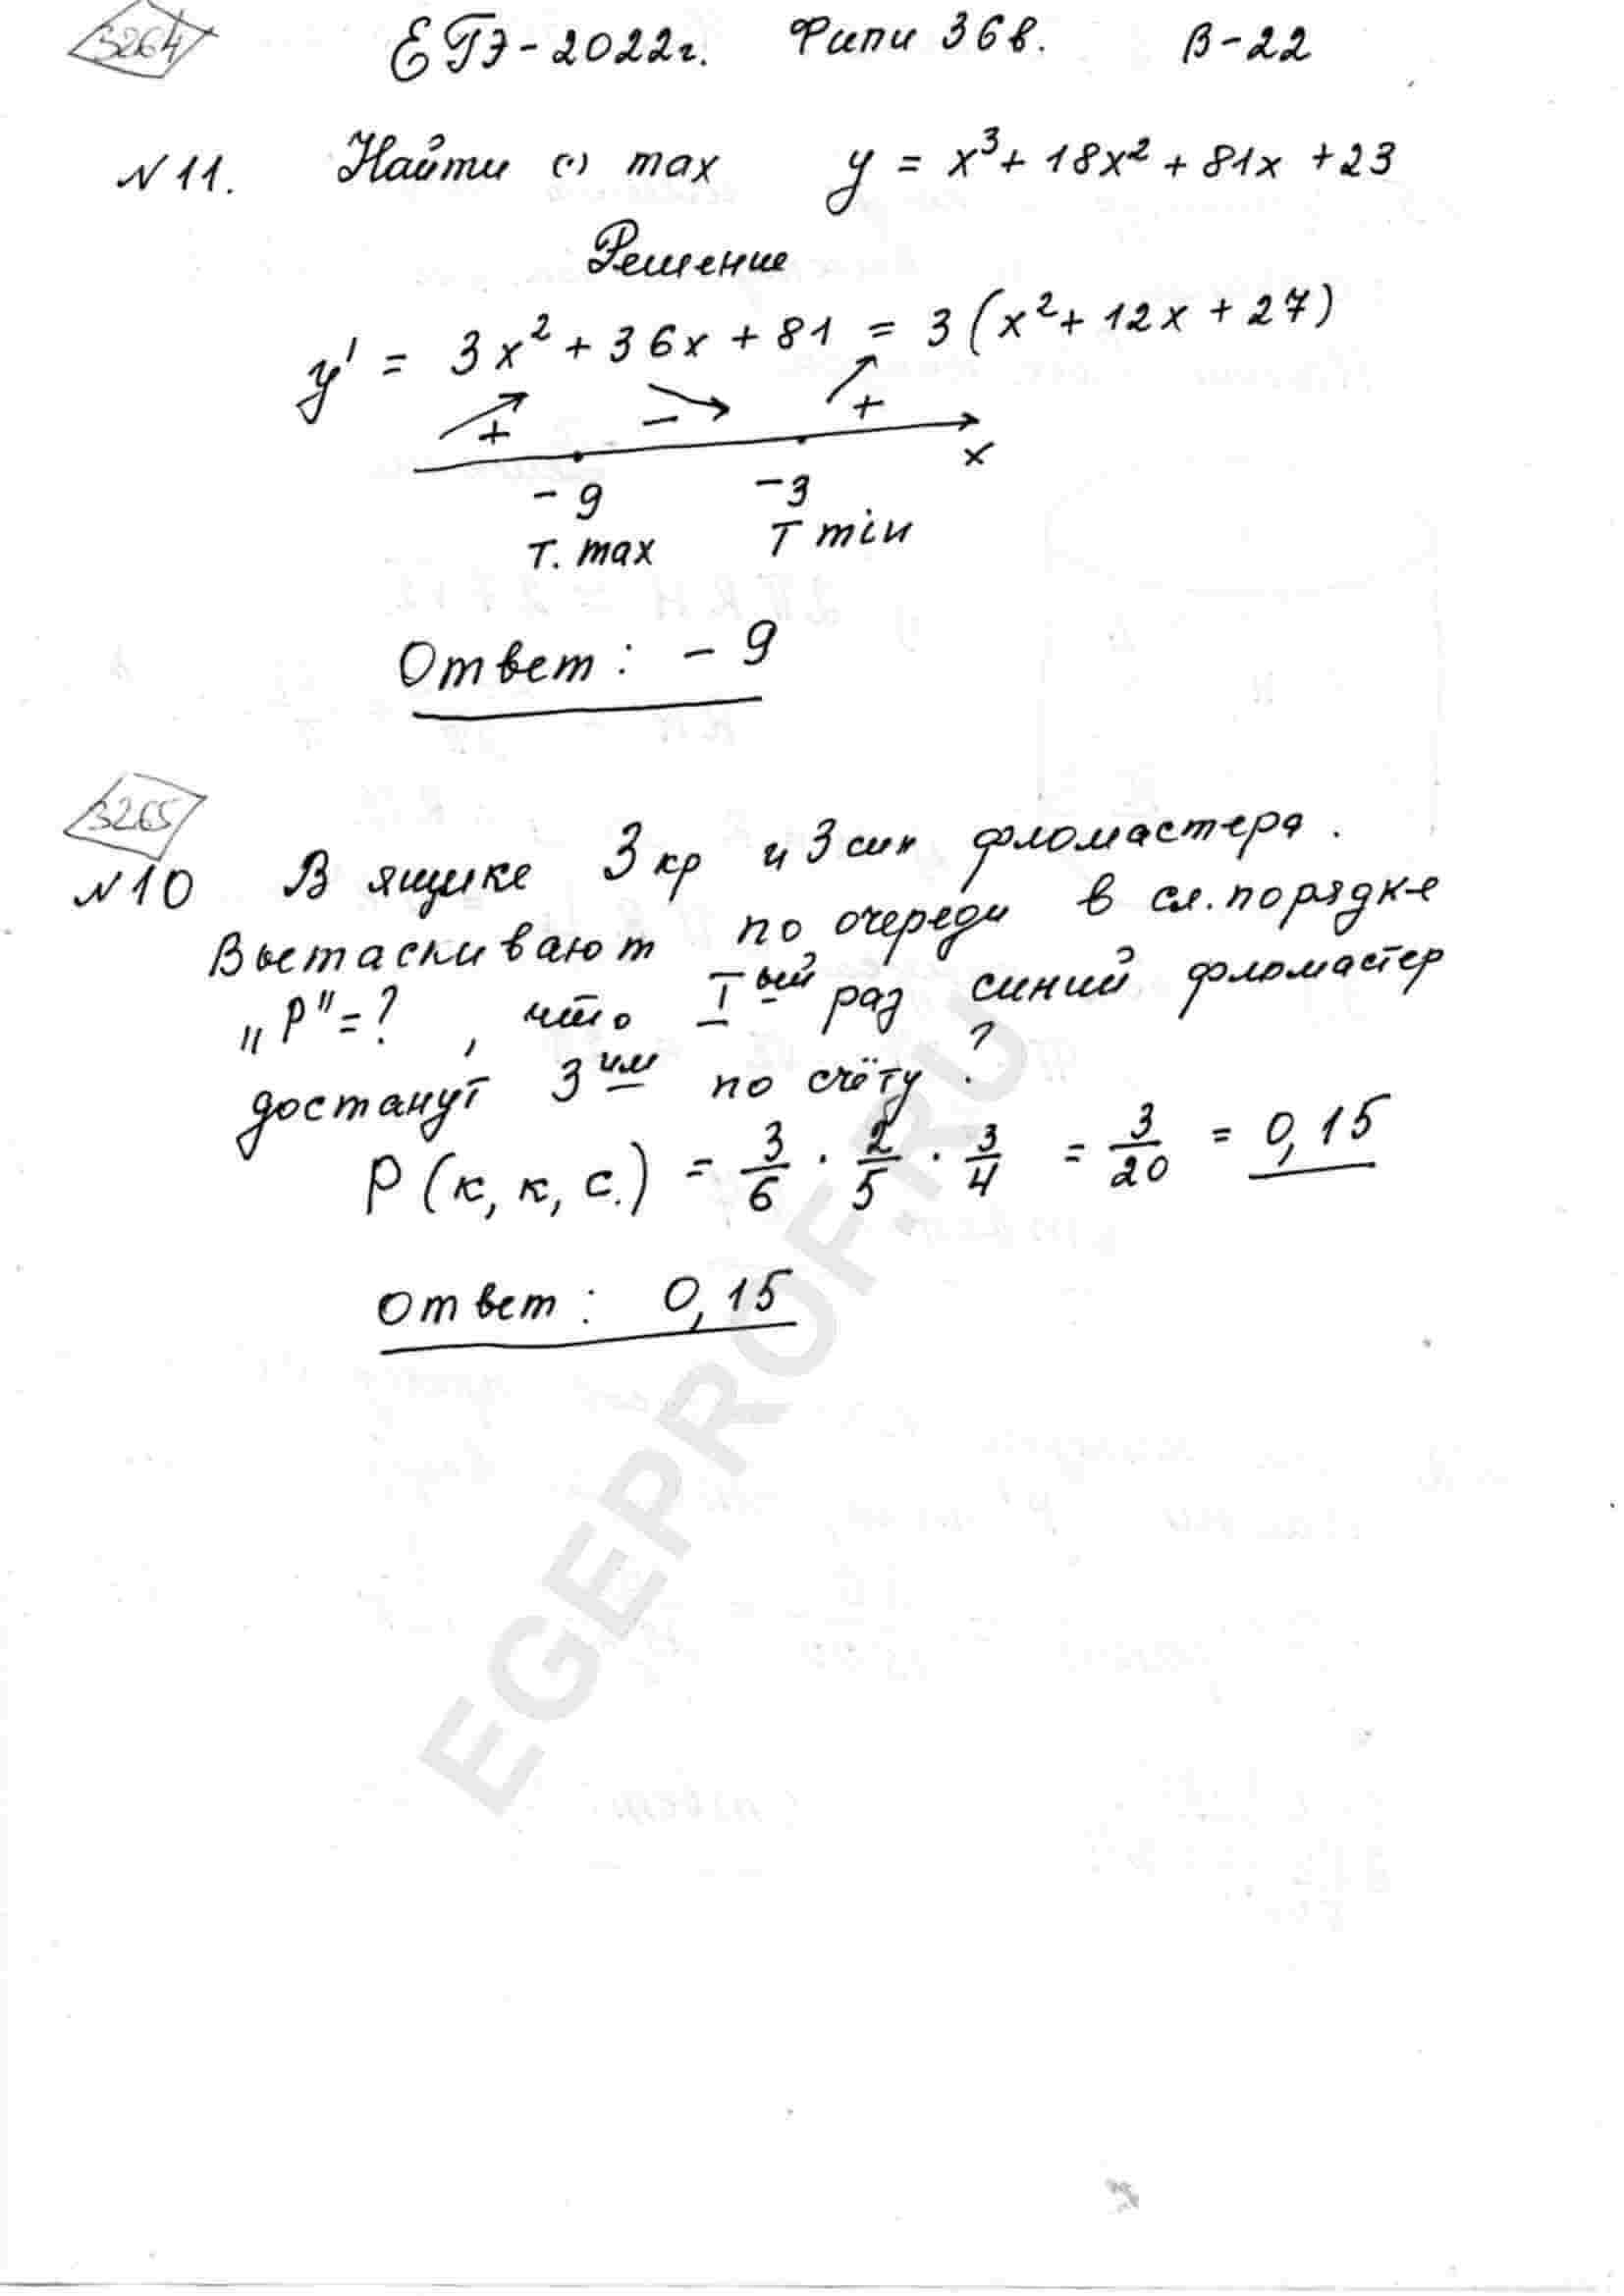 3264
ЕГЭ-2022г. Фипи 36в. В-22
№11. Найти (·) max y = x³ + 18x² + 81x + 23
Решение
y' = 3x² + 36x + 81 = 3(x² + 12x + 27)
+ − +
x
-9 -3
т. max т min
Ответ: -9
3265
№10 В ящике 3 кр и 3 син фломастера.
Вытаскивают по очереди в сл. порядке
„P" = ?, что I ый раз синий фломастер
достанут 3 им по счёту?
P(к, к, с.) = 3/6 · 2/5 · 3/4 = 3/20 = 0,15
Ответ: 0,15
EGEPROF.RU